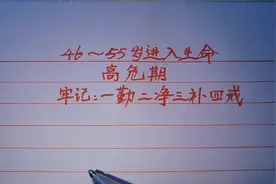 46～55岁进入生命
高危期
牢记:一勤二净三补四戒